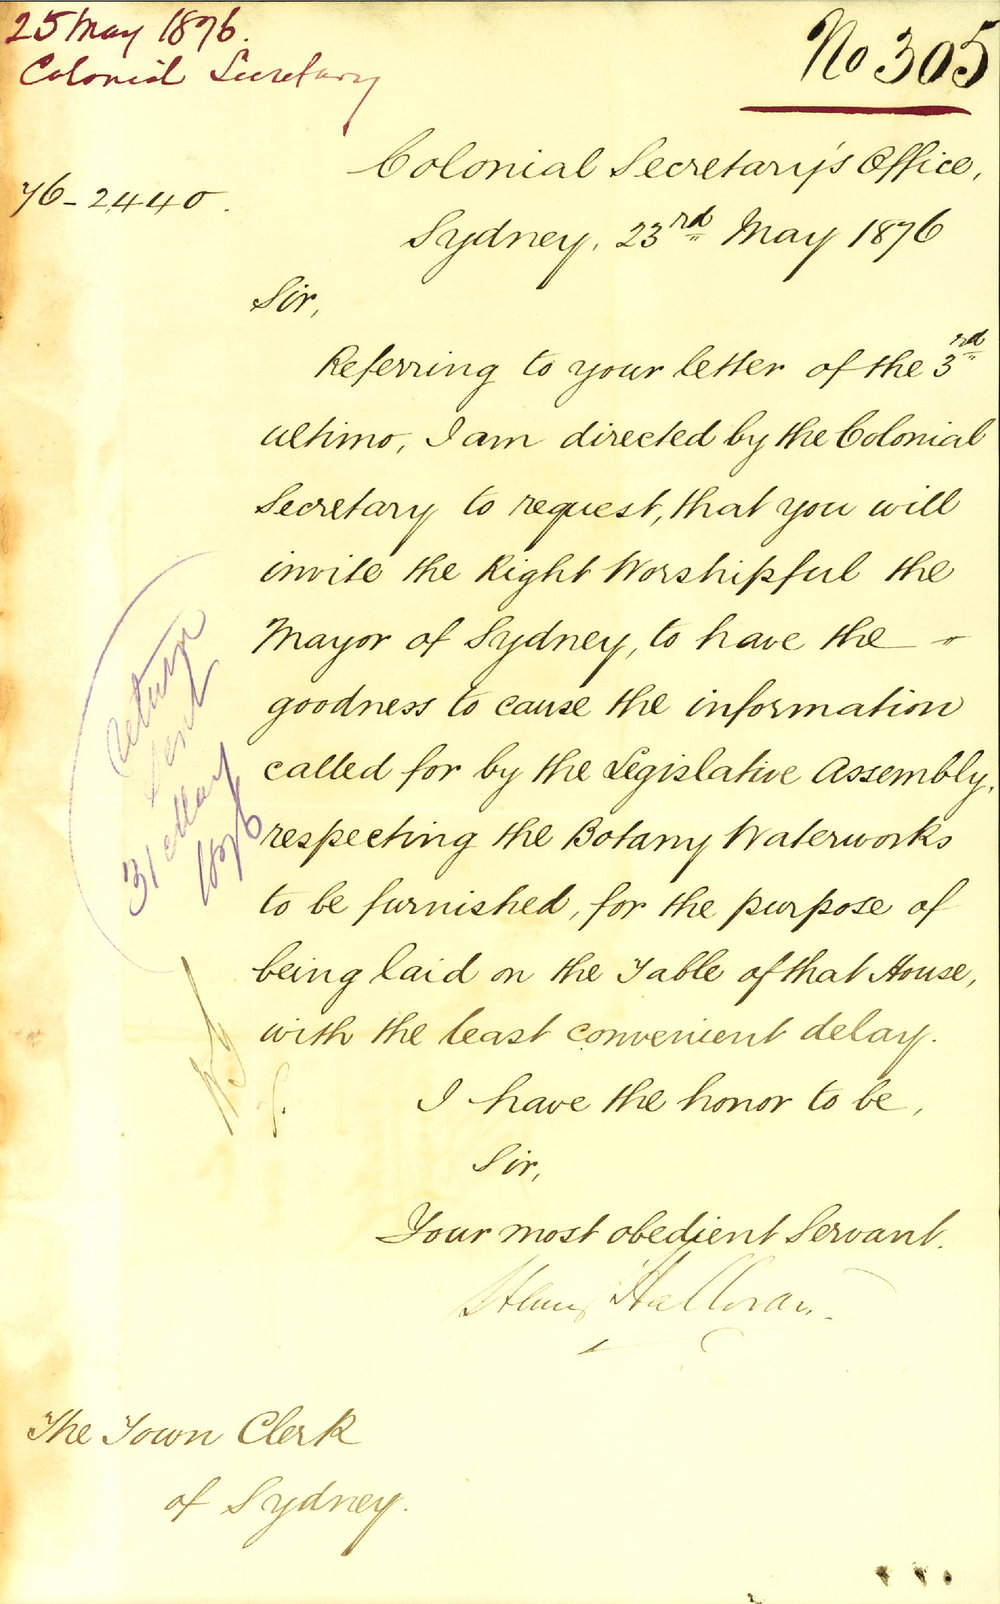 25 May 1876.
Colonial Secretary
No 305
Colonial Secretary's Office,
76-2440.
Sydney, 23rd May 1876
Sir,
Referring to your letter of the 3rd
ultimo, I am directed by the Colonial
Secretary to request, that you will
invite the Right Worshipful the
Mayor of Sydney, to have the
goodness to cause the information
called for by the Legislative Assembly,
respecting the Botany Waterworks
to be furnished, for the purpose of
being laid on the Table of that House,
with the least convenient delay.
Return
sent
31 May
1876
I have the honor to be,
Sir,
Your most obedient Servant.
Henry Halloran.
The Town Clerk
of Sydney.